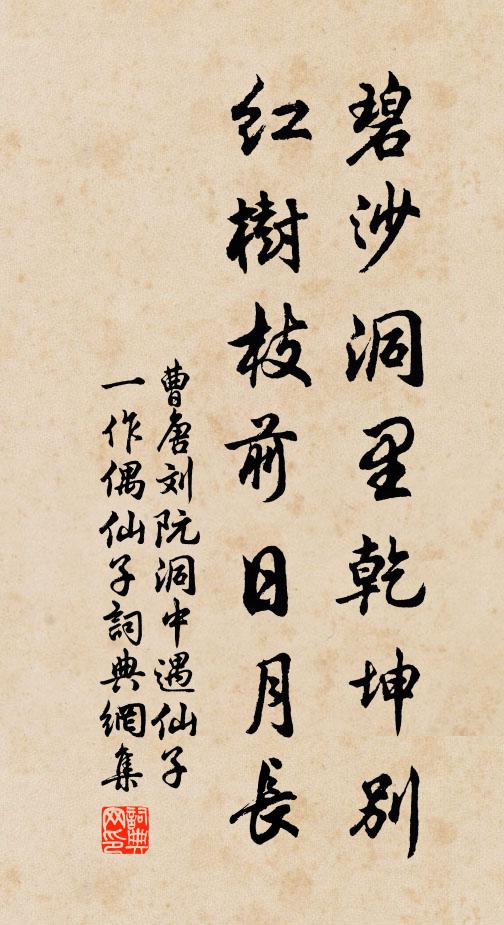 碧沙洞里乾坤別
紅樹枝前日月長
曹唐刘阮洞中遇仙子
一作偶仙子詞典網集
詞典网印